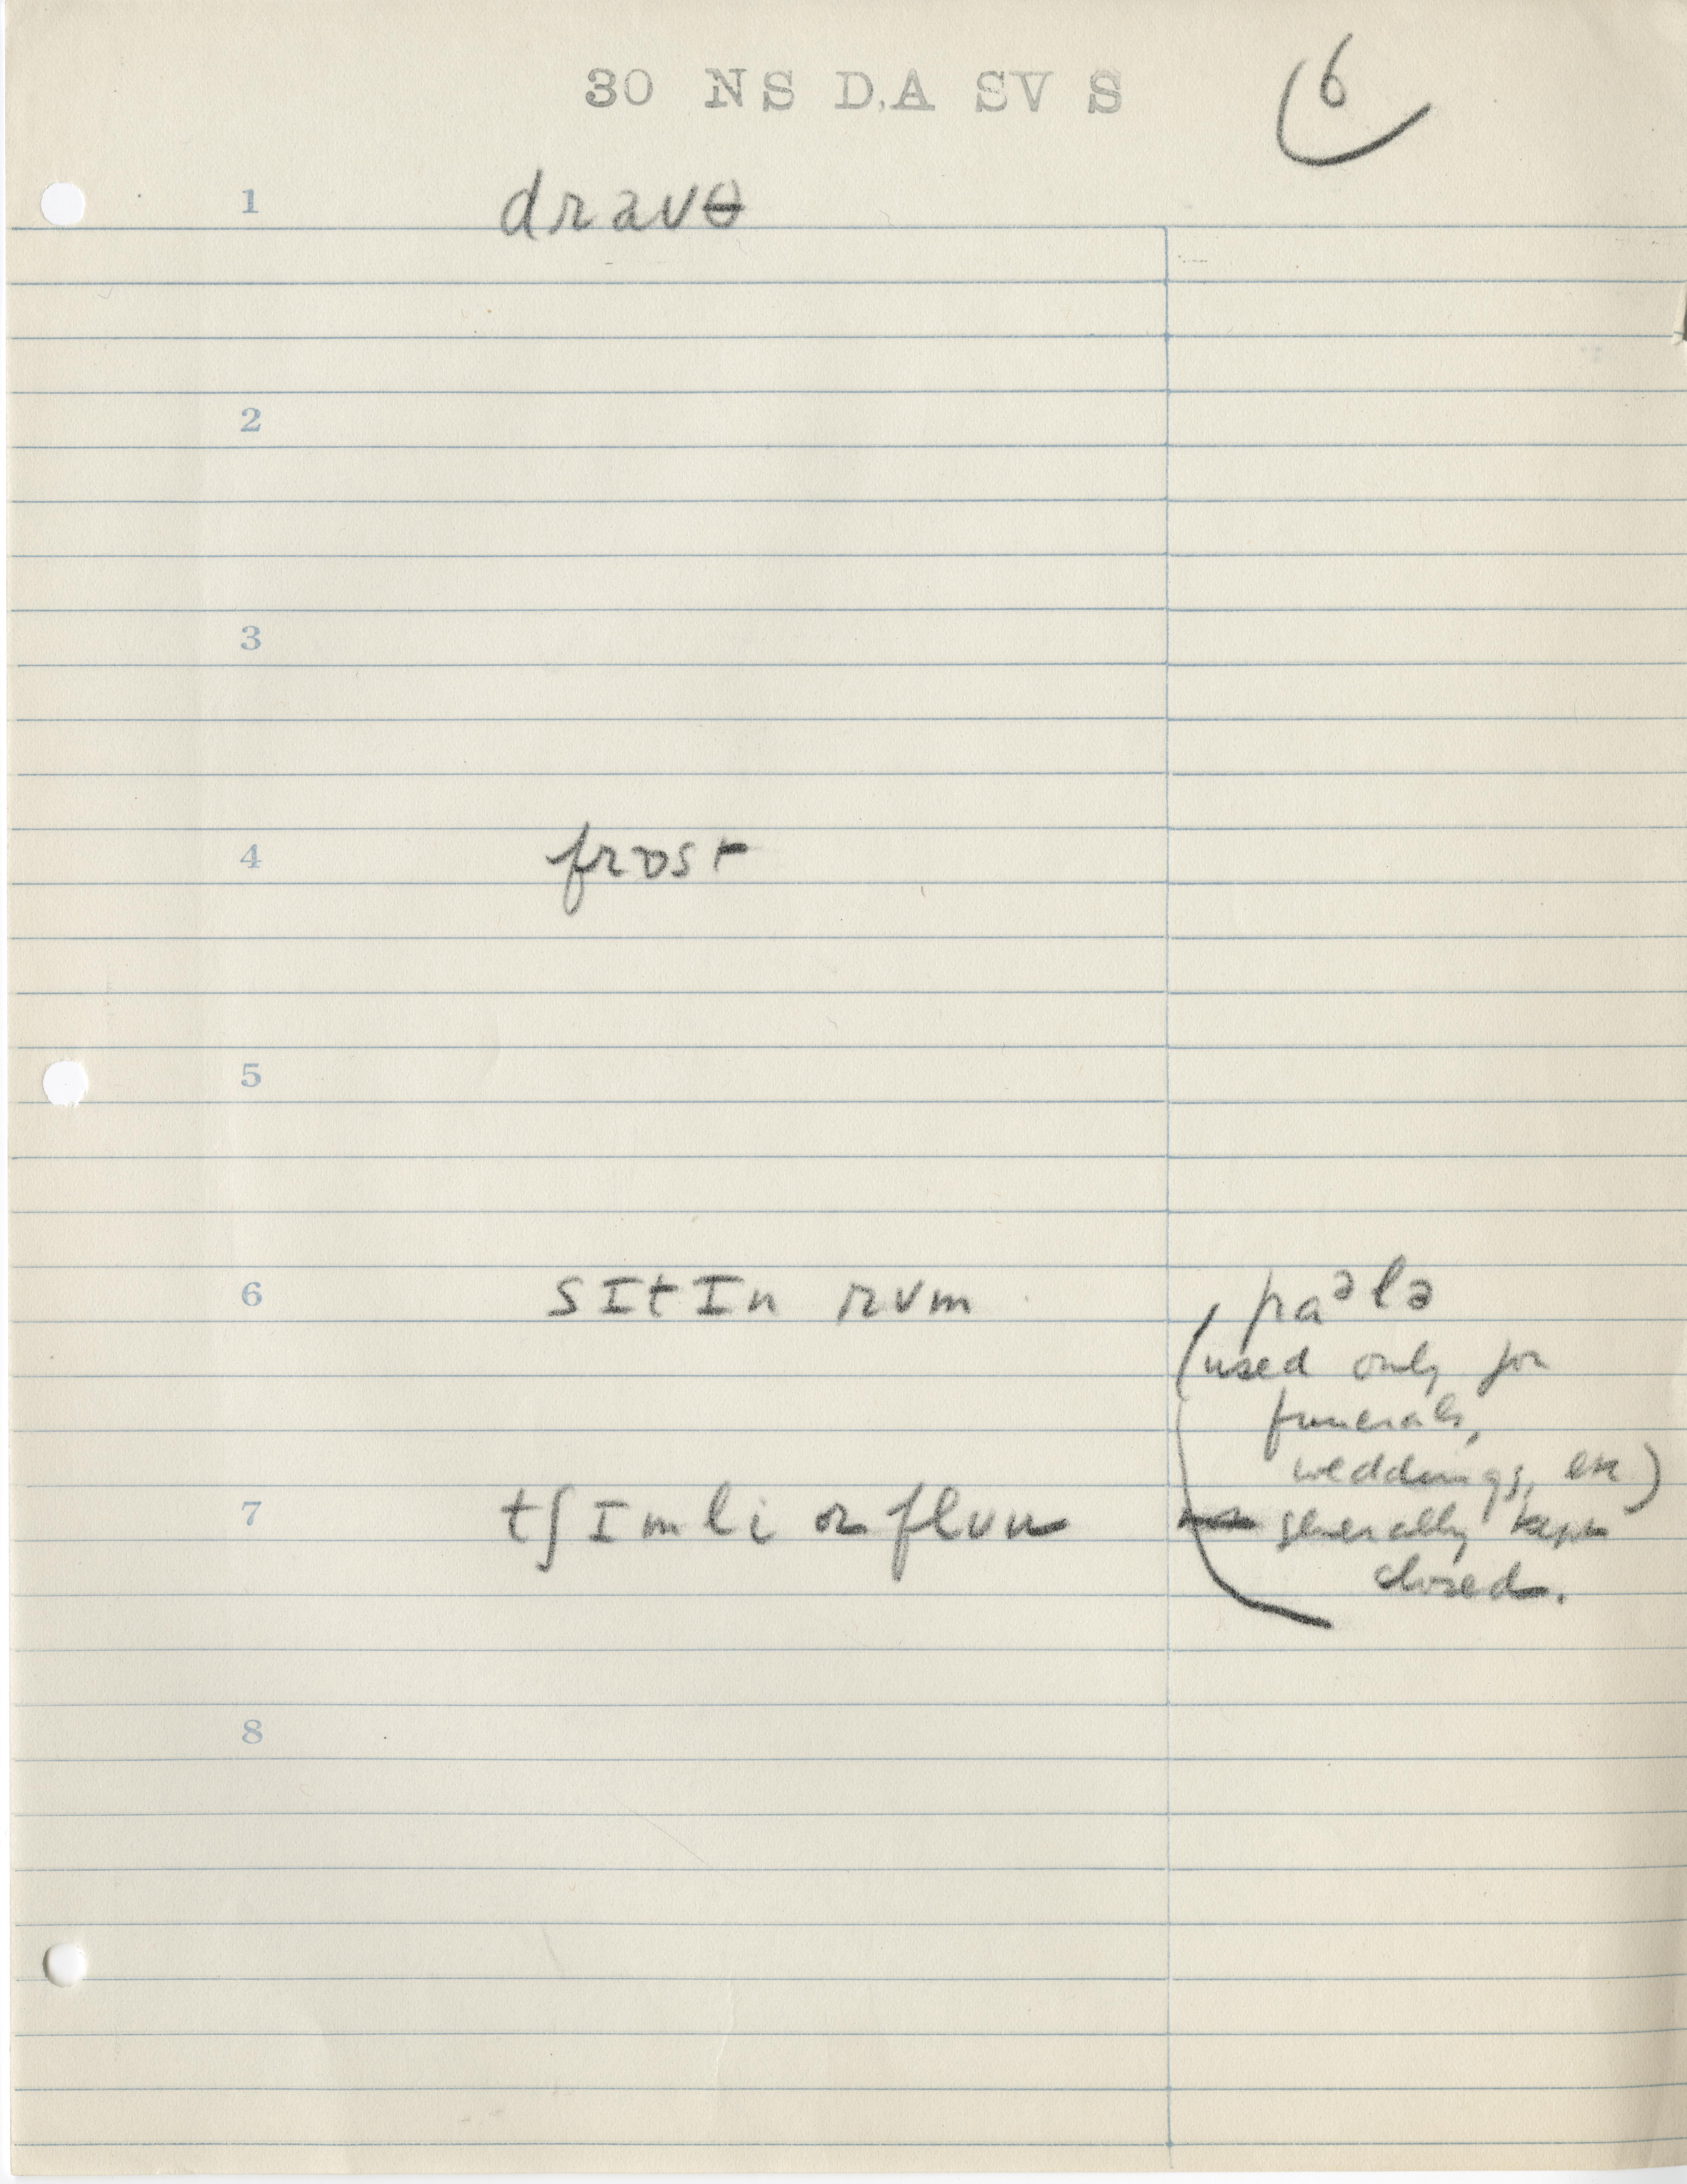 30 NS D.A SV S
6
1 draʊθ
2
3
4 frɒst
5
6 sɪtɪn rʊm
paᵊlə
(used only for
funerals,
weddings, etc)
7 tʃɪmli or flʊu
generally kept
closed.
8